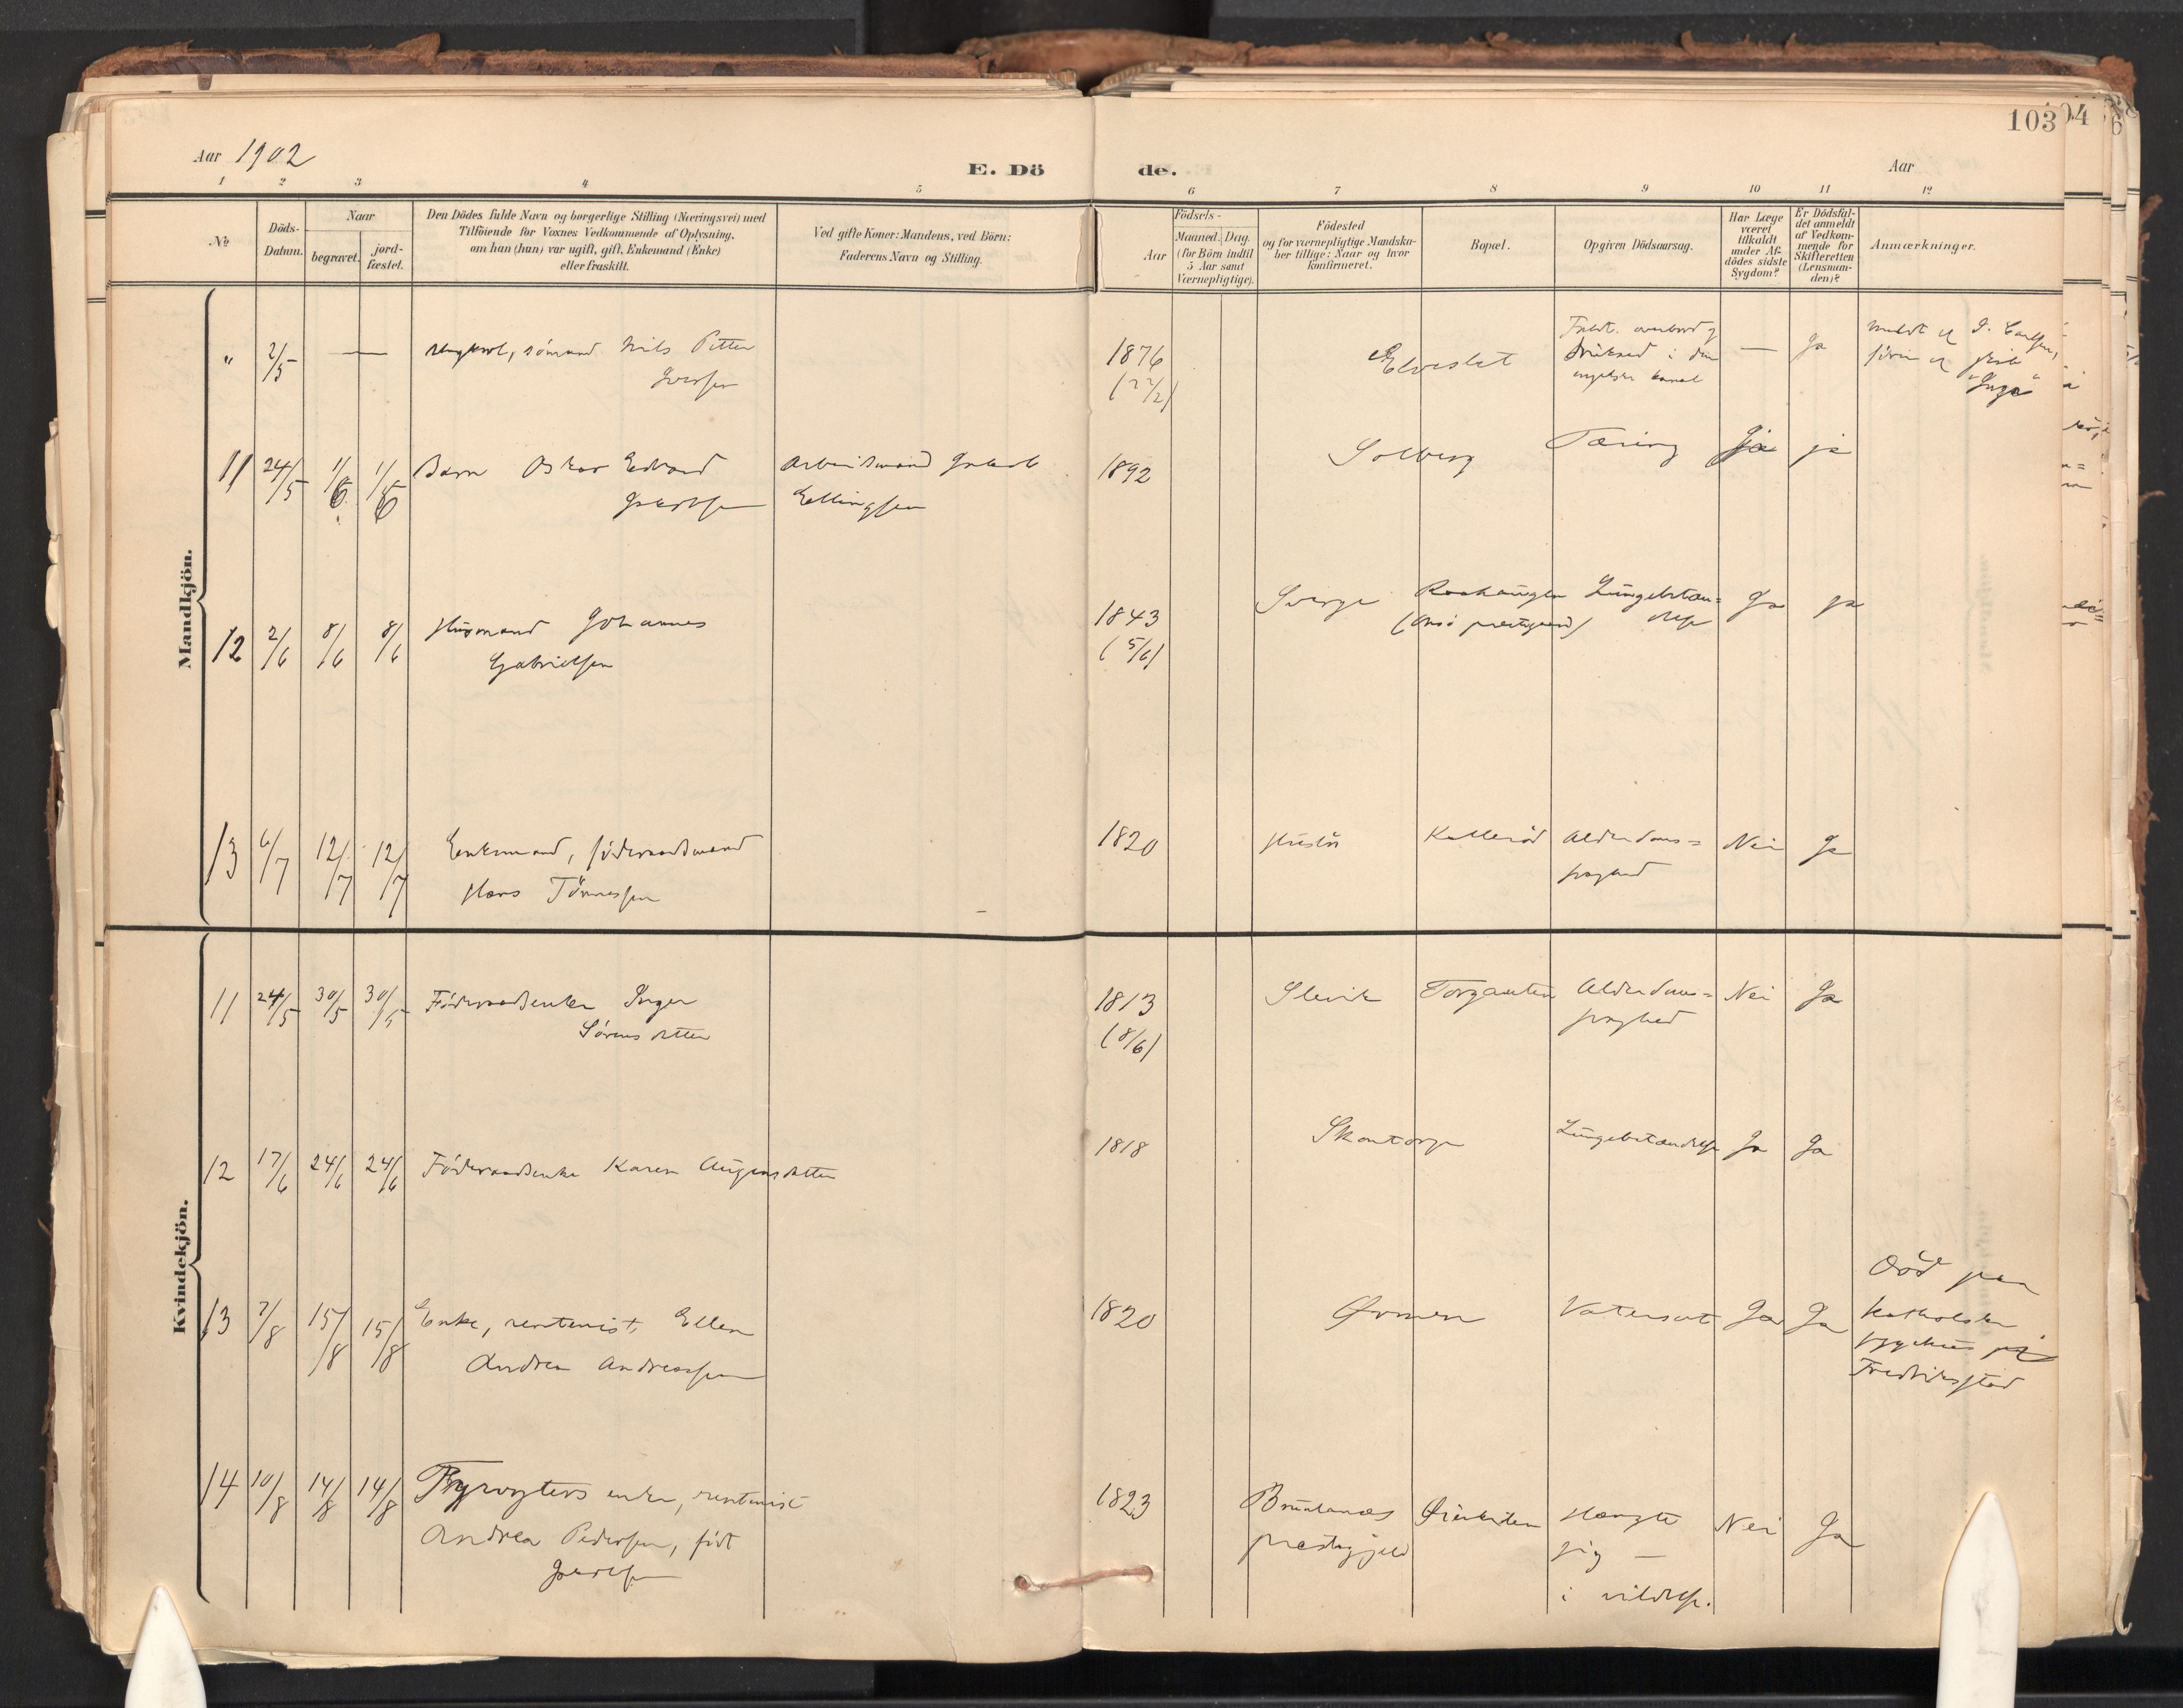 103
Aar 1902
E. Dö
de.
Aar
1 2 3 4 5 6 7 8 9 10 11 12
No
Döds-
Datum.
Naar
begravet.
jord-
fæstet.
Den Dödes fulde Navn og borgerlige Stilling (Næringsvei) med
Tilföiende for Voxnes Vedkommende af Oplysning,
om han (hun) var ugift, gift, Enkemand (Enke)
eller fraskilt.
Ved gifte Koner: Mandens, ved Börn:
Faderens Navn og Stilling.
Födsels-
Aar
Maaned. Dag.
(for Börn indtil
5 Aar samt
Værnepligtige).
Födested
og for værnepligtige Mandska-
ber tillige: Naar og hvor
konfirmeret.
Bopæl.
Opgiven Dödsaarsag.
Har Læge
været
tilkaldt
under Af-
dödes sidste
Sygdom?
Er Dödsfal-
det anmeldt
af Vedkom-
mende for
Skifteretten
(Lensman-
den)?
Anmærkninger.
Mandkjön.
" 2/5 — ungkarl, sömand Nils Petter
Iversen
1876
Elveslet
overbord
i den
engelske kanal
— Ja
"Inga"
11 24/5 1/6 1/6 Barn Oskar Edvard
Jakobsen
Arbeidsmand Jakob
Ellingsen
1892 Solberg Tæring Ja ja
12 2/6 8/6 8/6 Husmand Johannes
Gabrielsen
1843
(5/6)
Sverge Raahaugen
(Onsö prestegaard)
Lungebetæn=
delse
Ja ja
13 6/7 12/7 12/7 Enkemand, föderaadsmand
Hans Tönnessen
1820 Kalleröd Alderdoms=
svaghed
Nei Ja
Kvindekjön.
11 24/5 30/5 30/5 Föderaadsenke Inger
Sörensdatter
1813
(8/6)
Slevik Torgauten Alderdoms=
svaghed
Nei Ja
12 17/6 24/6 24/6 Föderaadsenke Karen Augensdatter
1818 Skantorpe Lungebetændelse Ja Ja
13 7/8 15/8 15/8 Enke, rentenist, Ellen
Andrea Andreassen
1820 Ørmen Vatersot Ja Ja
Död paa
katholske
sygehus på
Fredriksstad
14 10/8 14/8 14/8 Fyrvogters enke, rentenist
Andrea Pedersen, födt
Jakobsen
1823 Brunlanæs
prestegjeld
Hængte
sig —
i vildelse.
Nei Ja